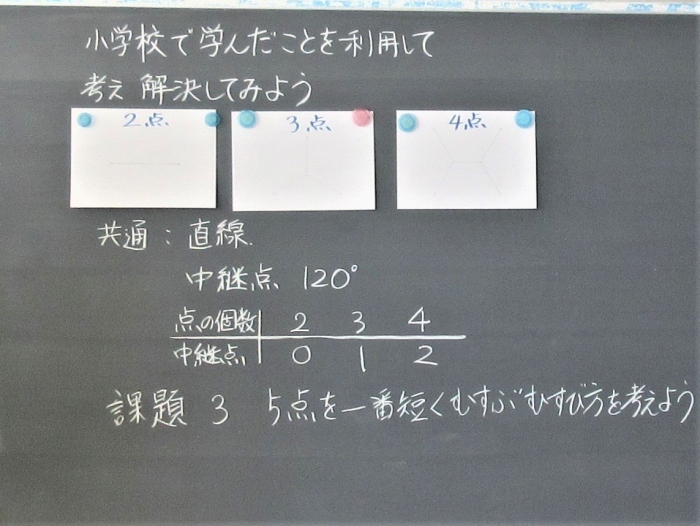 小学校で学んだことを利用して
考え 解決してみよう
2点 3点 4点
共通：直線.
中継点 120°
点の個数 2 3 4
中継点 0 1 2
課題 3 5点を一番短くむすぶむすび方を考えよう